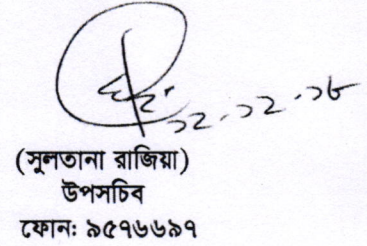 ১২.১২.১৮
(সুলতানা রাজিয়া)
উপসচিব
ফোন: ৯৫৭৬৬৯৭